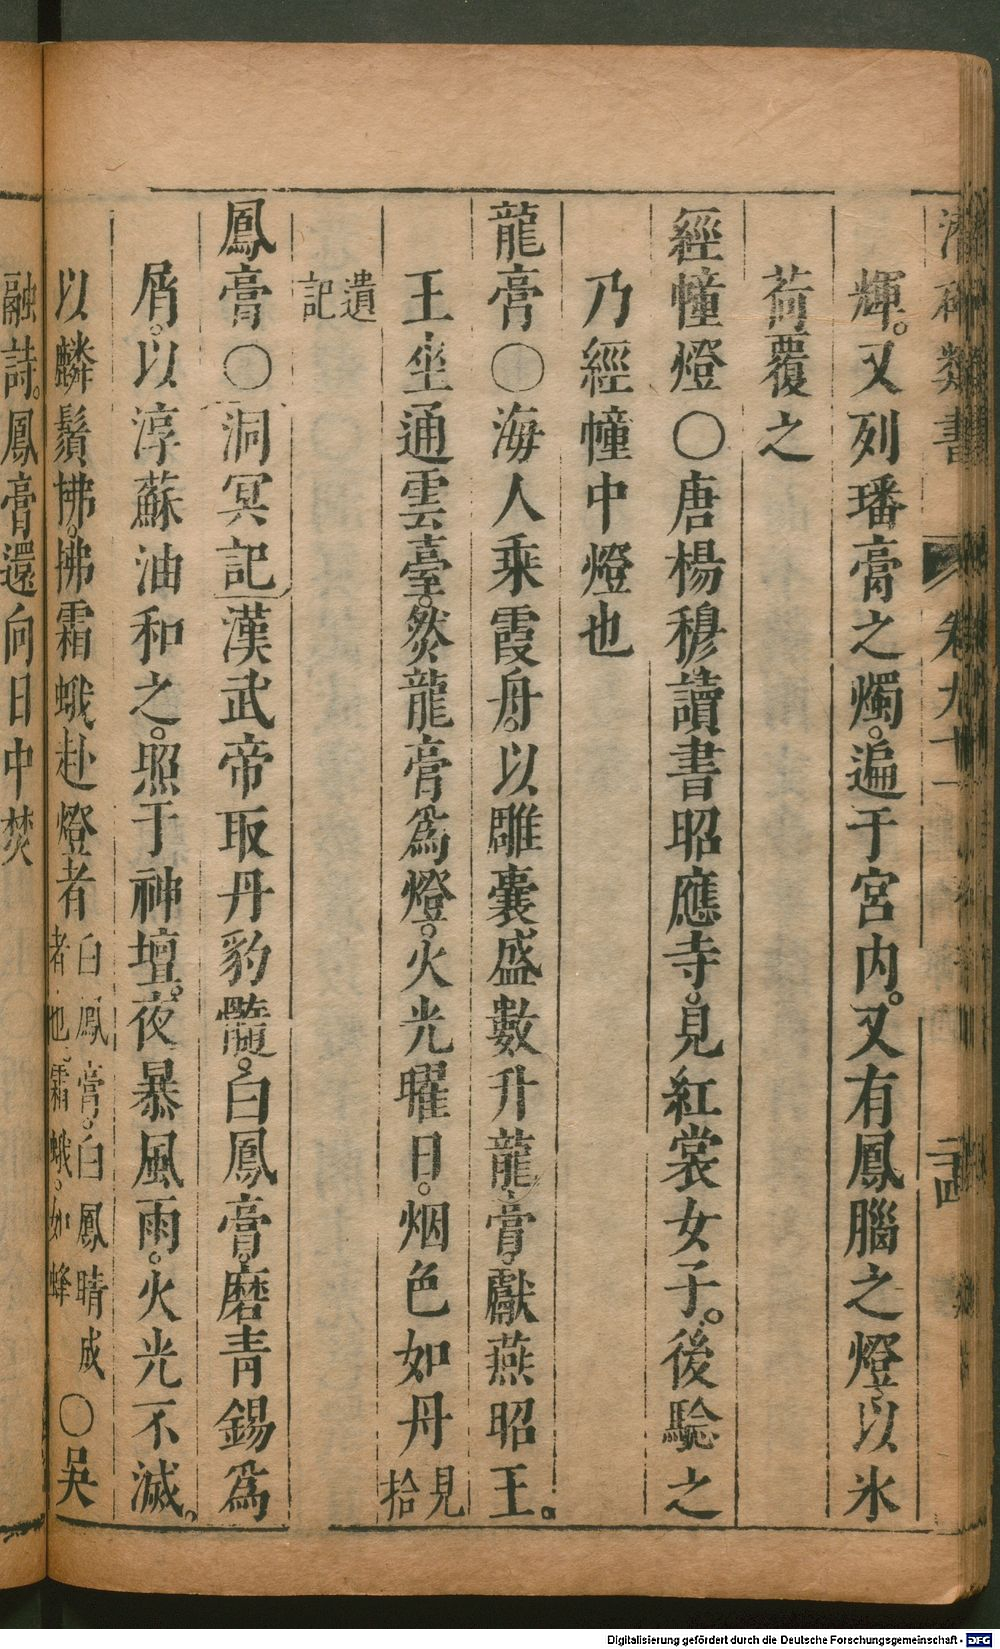 潛確類書 卷九十 二四
輝。又列璠膏之燭。遍于宮內。又有鳳腦之燈。以氷
荷覆之
經幢燈〇唐楊穆讀書昭應寺。見紅裳女子。後驗之
乃經幢中燈也
龍膏〇海人乘霞舟。以雕囊盛數升龍膏。獻燕昭王。
王坐通雲臺。然龍膏爲燈。火光曜日。烟色如丹 見拾
遺記
鳳膏〇洞冥記漢武帝取丹豹髓。白鳳膏。磨青錫爲
屑。以淳蘇油和之。照于神壇。夜暴風雨。火光不滅。
以麟鬚拂。拂霜蛾赴燈者 白鳳膏。白鳳睛成者也。霜蛾。如蜂 〇吳
融詩。鳳膏還向日中焚
Digitalisierung gefördert durch die Deutsche Forschungsgemeinschaft - DFG